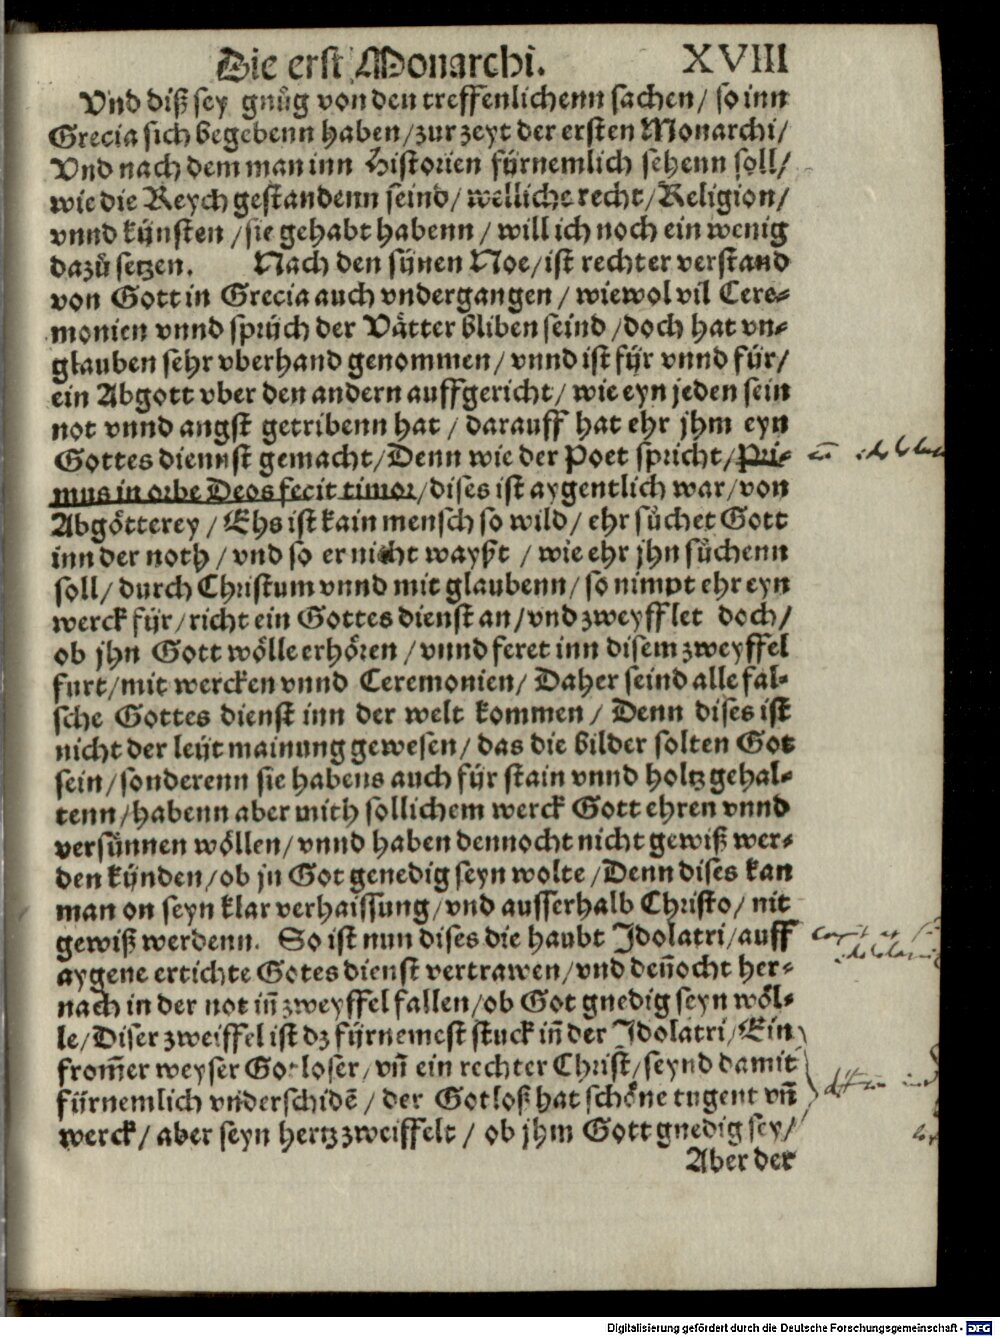 Die erst Monarchi. XVIII
Vnd diß sey gnůg von den treffenlichenn sachen/ so inn
Grecia sich begebenn haben/zur zeyt der ersten Monarchi/
Vnd nach dem man inn Historien fürnemlich sehenn soll/
wie die Reych gestandenn seind/ welliche recht/Religion/
vnnd künsten /sie gehabt habenn / will ich noch ein wenig
dazů setzen. Nach den sünen Noe/ist rechter verstand
von Gott in Grecia auch vndergangen / wiewol vil Cere-
monien vnnd sprüch der Vätter bliben seind /doch hat vn-
glauben sehr vberhand genommen/ vnnd ist für vnnd für/
ein Abgott vber den andern auffgericht/ wie eyn jeden sein
not vnnd angst getribenn hat / darauff hat ehr jhm eyn
Gottes diennst gemacht/Denn wie der Poet spricht/Pri-
mus in orbe Deos fecit timor/dises ist aygentlich war/von
Abgötterey / Ehs ist kain mensch so wild/ ehr sůchet Gott
inn der noth / vnd so er nicht wayßt / wie ehr jhn sůchenn
soll/ durch Christum vnnd mit glaubenn/ so nimpt ehr eyn
werck für/richt ein Gottes dienst an/vnd zweyfflet doch/
ob jhn Gott wölle erhören /vnnd feret inn disem zweyffel
furt/mit wercken vnnd Ceremonien/ Daher seind alle fal-
sche Gottes dienst inn der welt kommen/ Denn dises ist
nicht der leüt mainung gewesen/ das die bilder solten Got
sein/sonderenn sie habens auch für stain vnnd holtz gehal-
tenn/habenn aber mith sollichem werck Gott ehren vnnd
versünnen wöllen/vnnd haben dennocht nicht gewiß wer-
den künden/ob jn Got genedig seyn wolte /Denn dises kan
man on seyn klar verhaissung/vnd ausserhalb Christo/ nit
gewiß werdenn. So ist nun dises die haubt Idolatri/auff
aygene ertichte Gotes dienst vertrawen/vnd deñocht her-
nach in der not iñ zweyffel fallen/ob Got gnedig seyn wöl-
le/Diser zweiffel ist dz fürnemest stuck iñ der Idolatri/Ein
from̃er weyser Gotloser/vñ ein rechter Christ/seynd damit
fürnemlich vnderschidẽ/ der Gotloß hat schöne tugent vñ
werck/ aber seyn hertz zweiffelt / ob jhm Gott gnedig sey/
Aber der
Digitalisierung gefördert durch die Deutsche Forschungsgemeinschaft - DFG